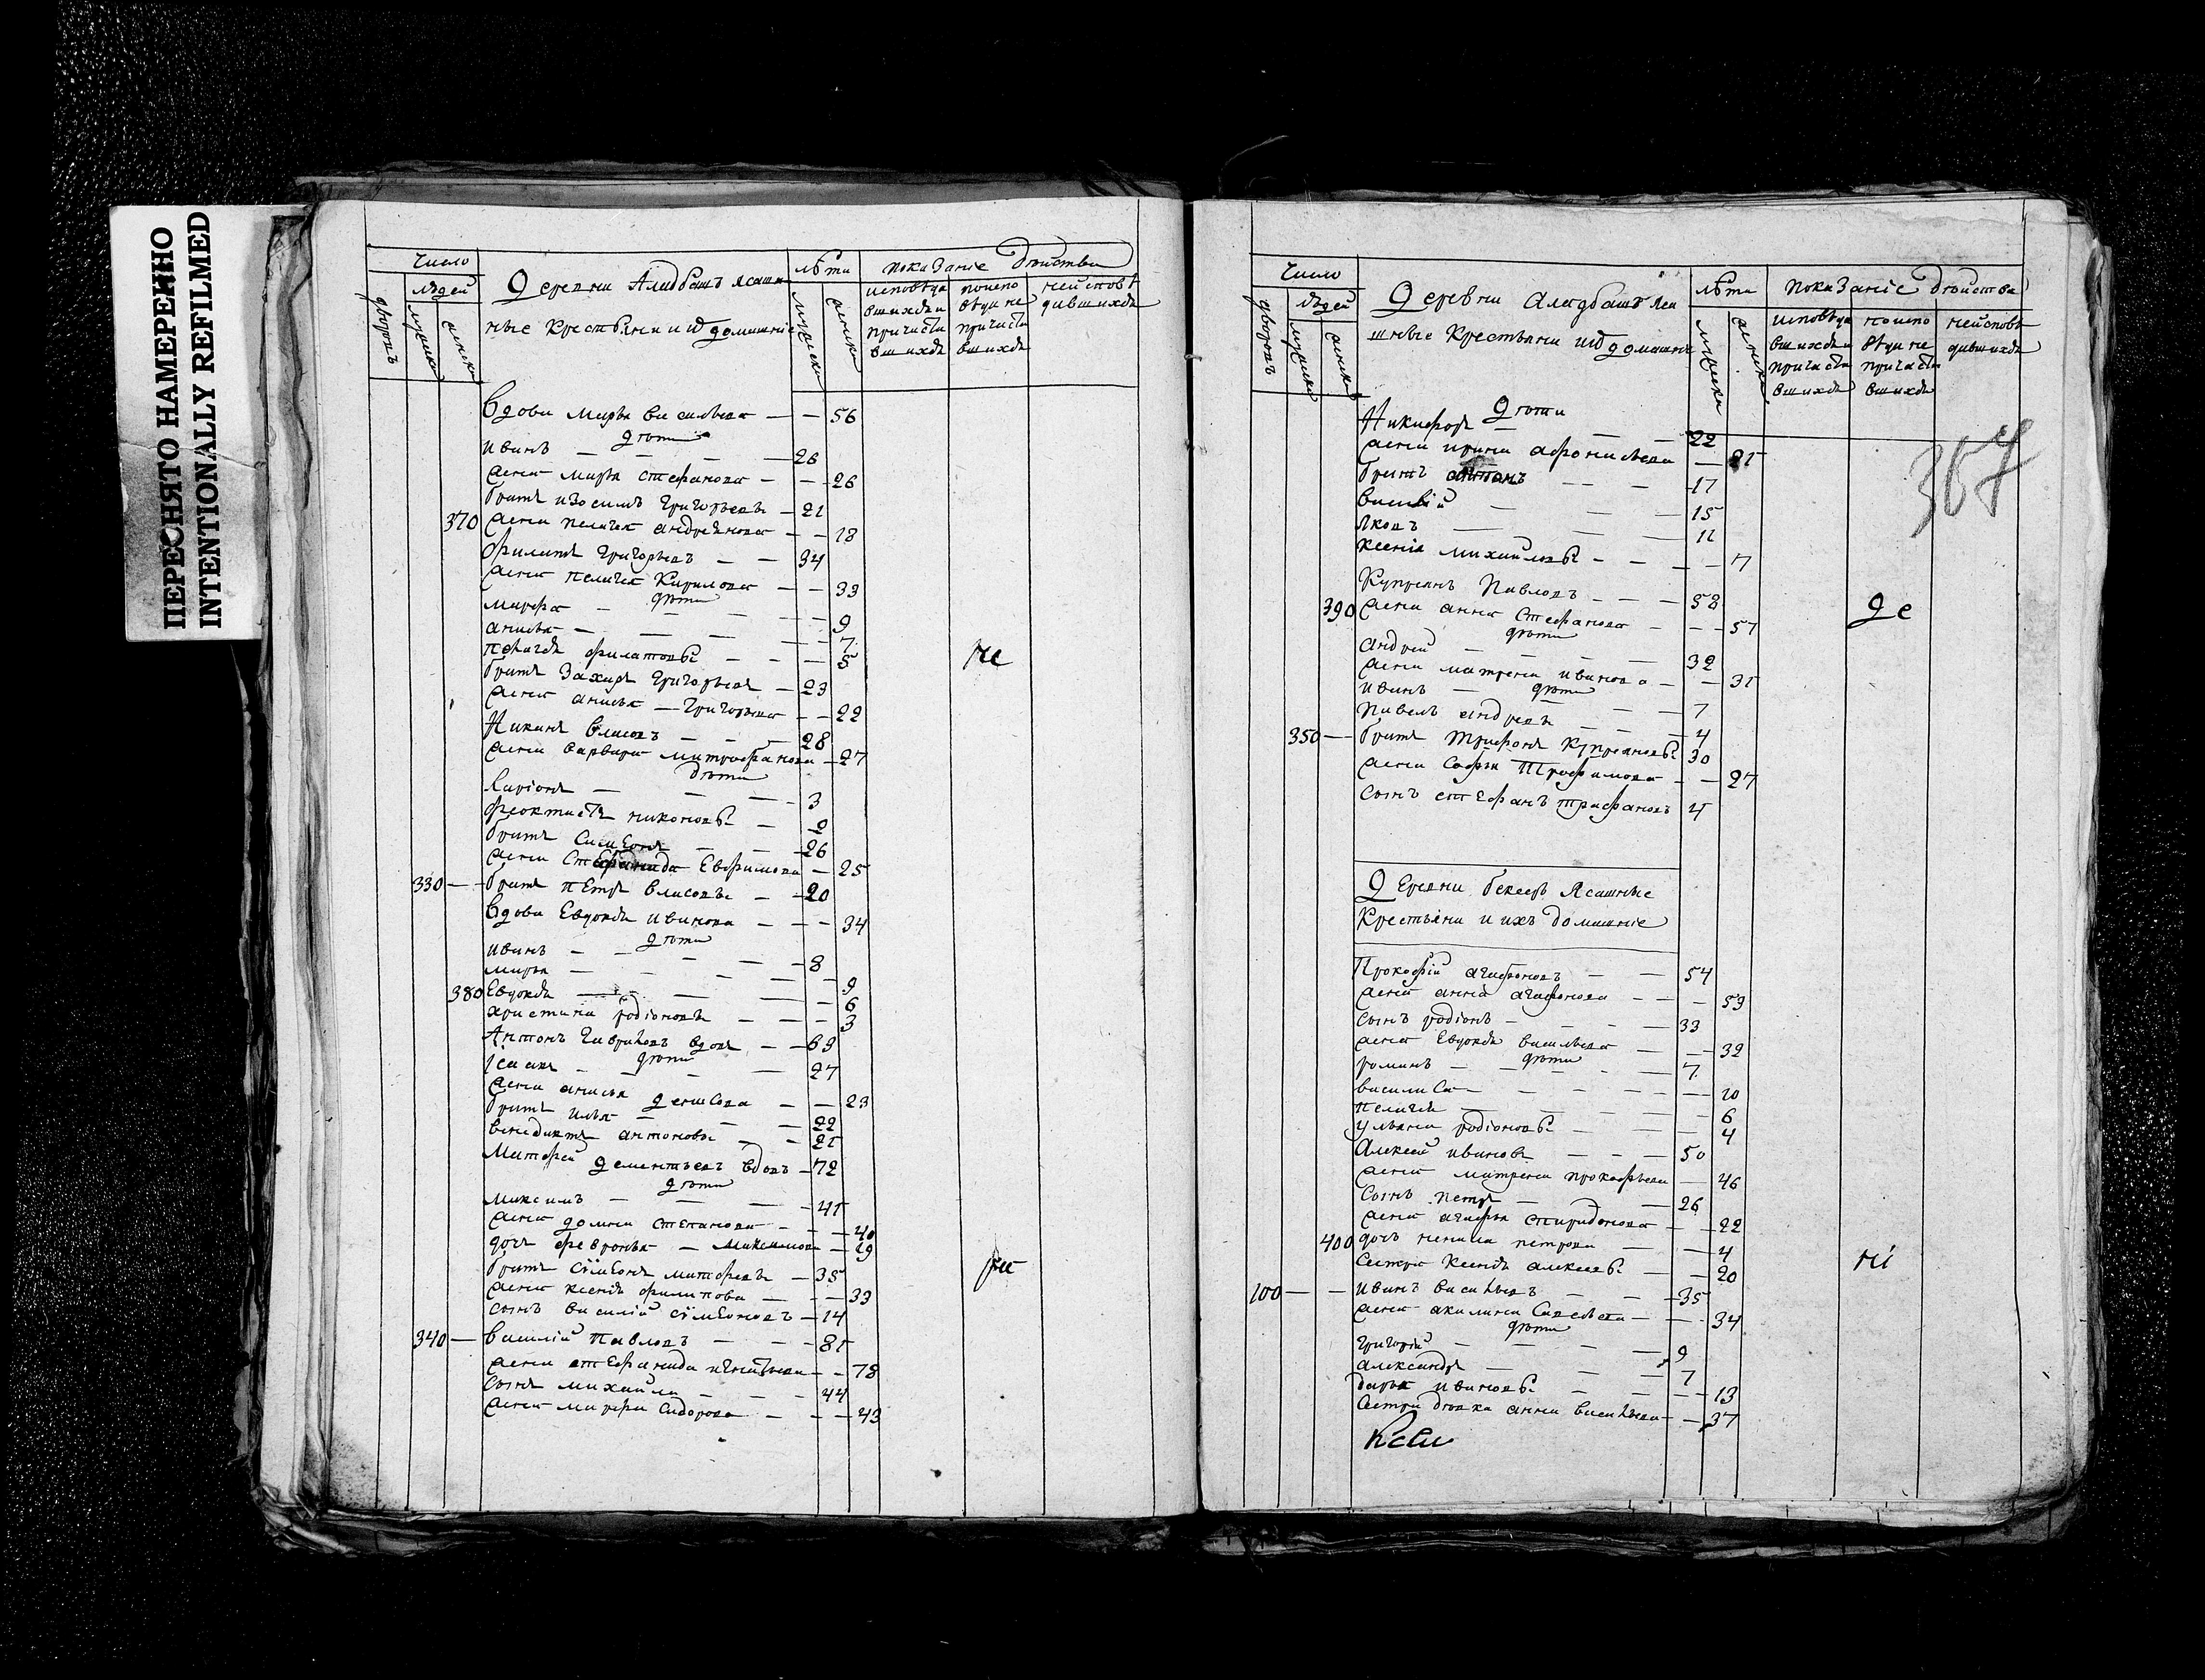 ПЕРЕСНЯТО НАМЕРЕННО
INTENTIONALLY REFILMED
Число
людей
дворовъ
мужска
женска
Деревни Алдбашъ ясаш
ные Крестьяни и ид домашние
лѣта
мужска
женска
показание
исповѣда
вшихся и
причасти
вшихся
поиспо
вѣди не
причасти
вшихся
неисповѣ
давшихся
Вдова марья васильева — — 56
дѣти
иванъ — — — 26
жена марья стефанова — — 26
братъ изосимъ григорьевъ — 21
370 жена пелагея андреянова — — 18
филипъ григорьевъ — — 34
жена пелагея Кирилова — — 33
дѣти
марфа — — — 9
анисья — — — 7
пелагея филатовы — — 5
не
братъ захаръ григорьевъ — 23
жена анисья — григорьева — — 22
Никонъ власовъ — — 28
жена варвара митрофанова — 27
дѣти
Ларионъ — — — 3
феоктистъ никоновы — 2
братъ Симеонъ — — 26
жена Стефанида Ефимова — 25
330 — братъ пЕтръ власовъ — 20
Вдова Евдокия иванова — — 34
дѣти
иванъ — — — 8
марья — — — 9
380 Евдокия — — — 6
христина родионовы — — 3
Антонъ Гавриловъ вдовъ — 69
дѣти
исаакъ — — — 27
жена анисья денисова — — 23
братъ илья — — 22
венедиктъ антоновы — — 21
Матфей дементьевъ вдовъ — 72
дѣти
максимъ — — — 41
жена домна степанова — — 40
дочь февронья — максимова — 19
братъ симеонъ матфеевъ — 35
жена ксения филипова — — 33
сынъ василий симеоновъ — 14
340 — василий павловъ — — 81
жена стефанида игнатьева — — 78
сынъ михайла — — — 44
жена марфа Сидорова — — — 43
Число
людей
дворовъ
мужска
женска
Деревни Алдбашъ яса
шные Крестьяни ид домашние
лѣта
мужска
женска
показание действа
исповѣда
вшихся и
причасти
вшихся
поиспо
вѣди не
причасти
вшихся
неисповѣ
давшихся
367
дѣти
Никифоръ — — — 22
жена ирина афонасьева — 21
братъ антонъ — — 17
василий — — 15
яковъ — — — 11
ксения михайловы — — — 7
Куприянъ Павловъ — — — 58
390 жена анна Стефанова — — — 57
де
дѣти
андрей — — — 32
жена матрена иванова — — 31
дѣти
иванъ — — — 7
павелъ андреевы — — — 4
350 — братъ трифонъ куприановъ 30
жена софья трофимова — — 27
сынъ стЕфанъ трифановъ 4
Деревни бексеръ Ясашные
Крестьяни и ихъ домашние
Прокофий агафоновъ — — 54
жена анна агафонова — — — 53
сынъ родионъ — — — 33
жена Евдокия васильева — — 32
дѣти
романъ — — — 7
василиса — — — 10
пелагея — — — 6
ульяна родионовы — — 4
алексей ивановъ — — — 50
жена матрена прокофьева — 46
сынъ петръ — — — 26
жена агафья спиридонова — — 22
400 дочь ненила петрова — — 4
не
сестра Ксения алексеева — — 20
100 — — иванъ васильевъ — — 35
жена акилина Савельева — — 34
дѣти
григорий — — — 9
александръ — — — 7
дарья ивановы — — — 13
сестра девка анна васильева — — 37